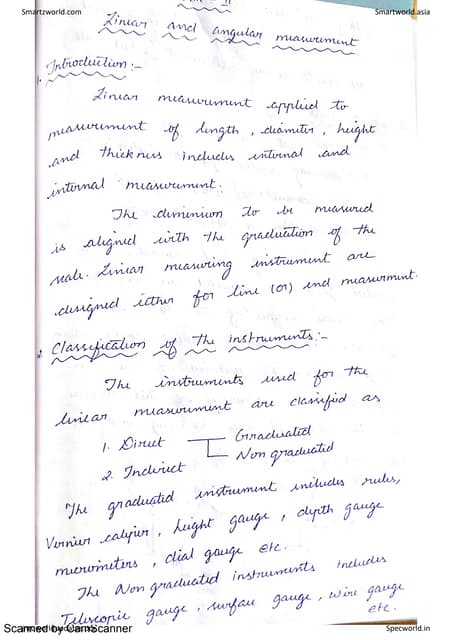 Smartzworld.com
Smartworld.asia
Linear and angular measurement
1. Introduction :-
Linear measurement applied to
measurement of length, diameter, height
and thickness includes internal and
internal measurement.
The dimension to be measured
is aligned with the graduation of the
scale. Linear measuring instrument are
designed either for line (or) end measurment.
2. Classification of the instruments :-
The instruments used for the
linear measurement are classified as
1. Direct
Graduated
Non graduated
2. Indirect
The graduated instrument includes rules,
Vernier caliper, height gauge, depth gauge
micrometers, dial gauge etc.
The Non graduated instruments includes
Telescopic gauge, surface gauge, wire gauge
etc.
Scanned by CamScanner
Specworld.in